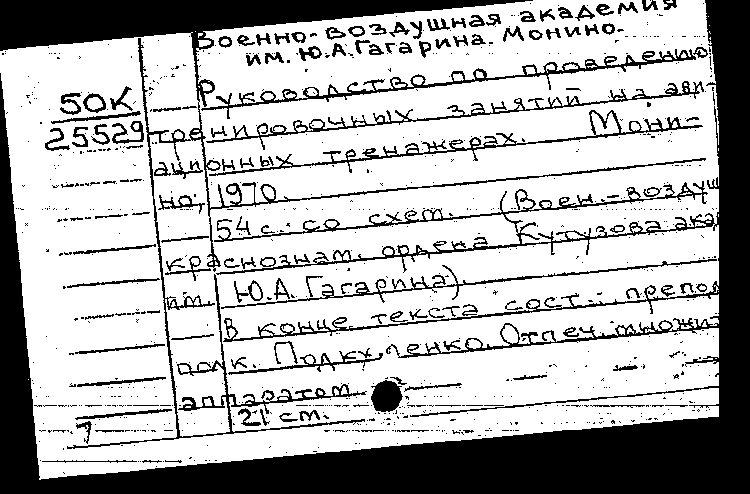 Военно-воздушная академия
им. Ю.А.Гагарина. Монино.
50К
25529
Руководство по проведению
тренировочных занятий на ави-
ационных тренажерах. Мони-
но, 1970.
54 с. со схем. (Воен.-воздуш
краснознам. ордена Кутузова ака
им. Ю.А. Гагарина).
В конце текста сост.: препод
полк. Отпеч. множит
аппаратом
21 см.
1